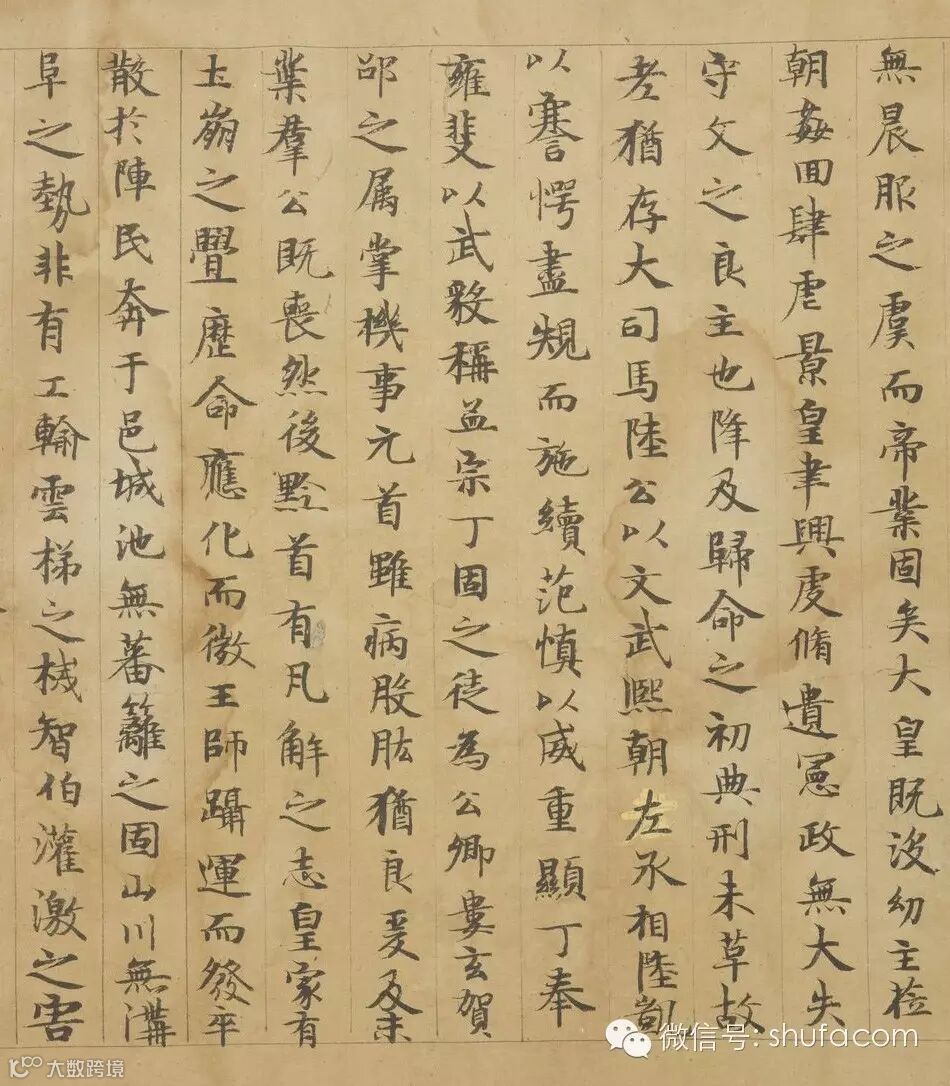 無晨服之虞而帝業固矣大皇既没幼主莅
朝姦回肆虐景皇聿興虔脩遺憲政無大失
守文之良主也降及歸命之初典刑未草故
老猶存大司馬陸公以文武熙朝左丞相陸凱
以謇愕盡規而施續范慎以威重顯丁奉
雍斐以武毅稱孟宗丁固之徒為公卿婁玄賀
邵之属掌機事元首雖病股肱猶良爰及末
葉羣公既喪然後黔首有凡解之志皇家有
土崩之舋歷命應化而微王師躡運而發卒
散於陣民奔于邑城池無蕃籬之固山川無溝
阜之勢非有工輸雲梯之械智伯灌激之害
微信号: shufa.com
大数跨境